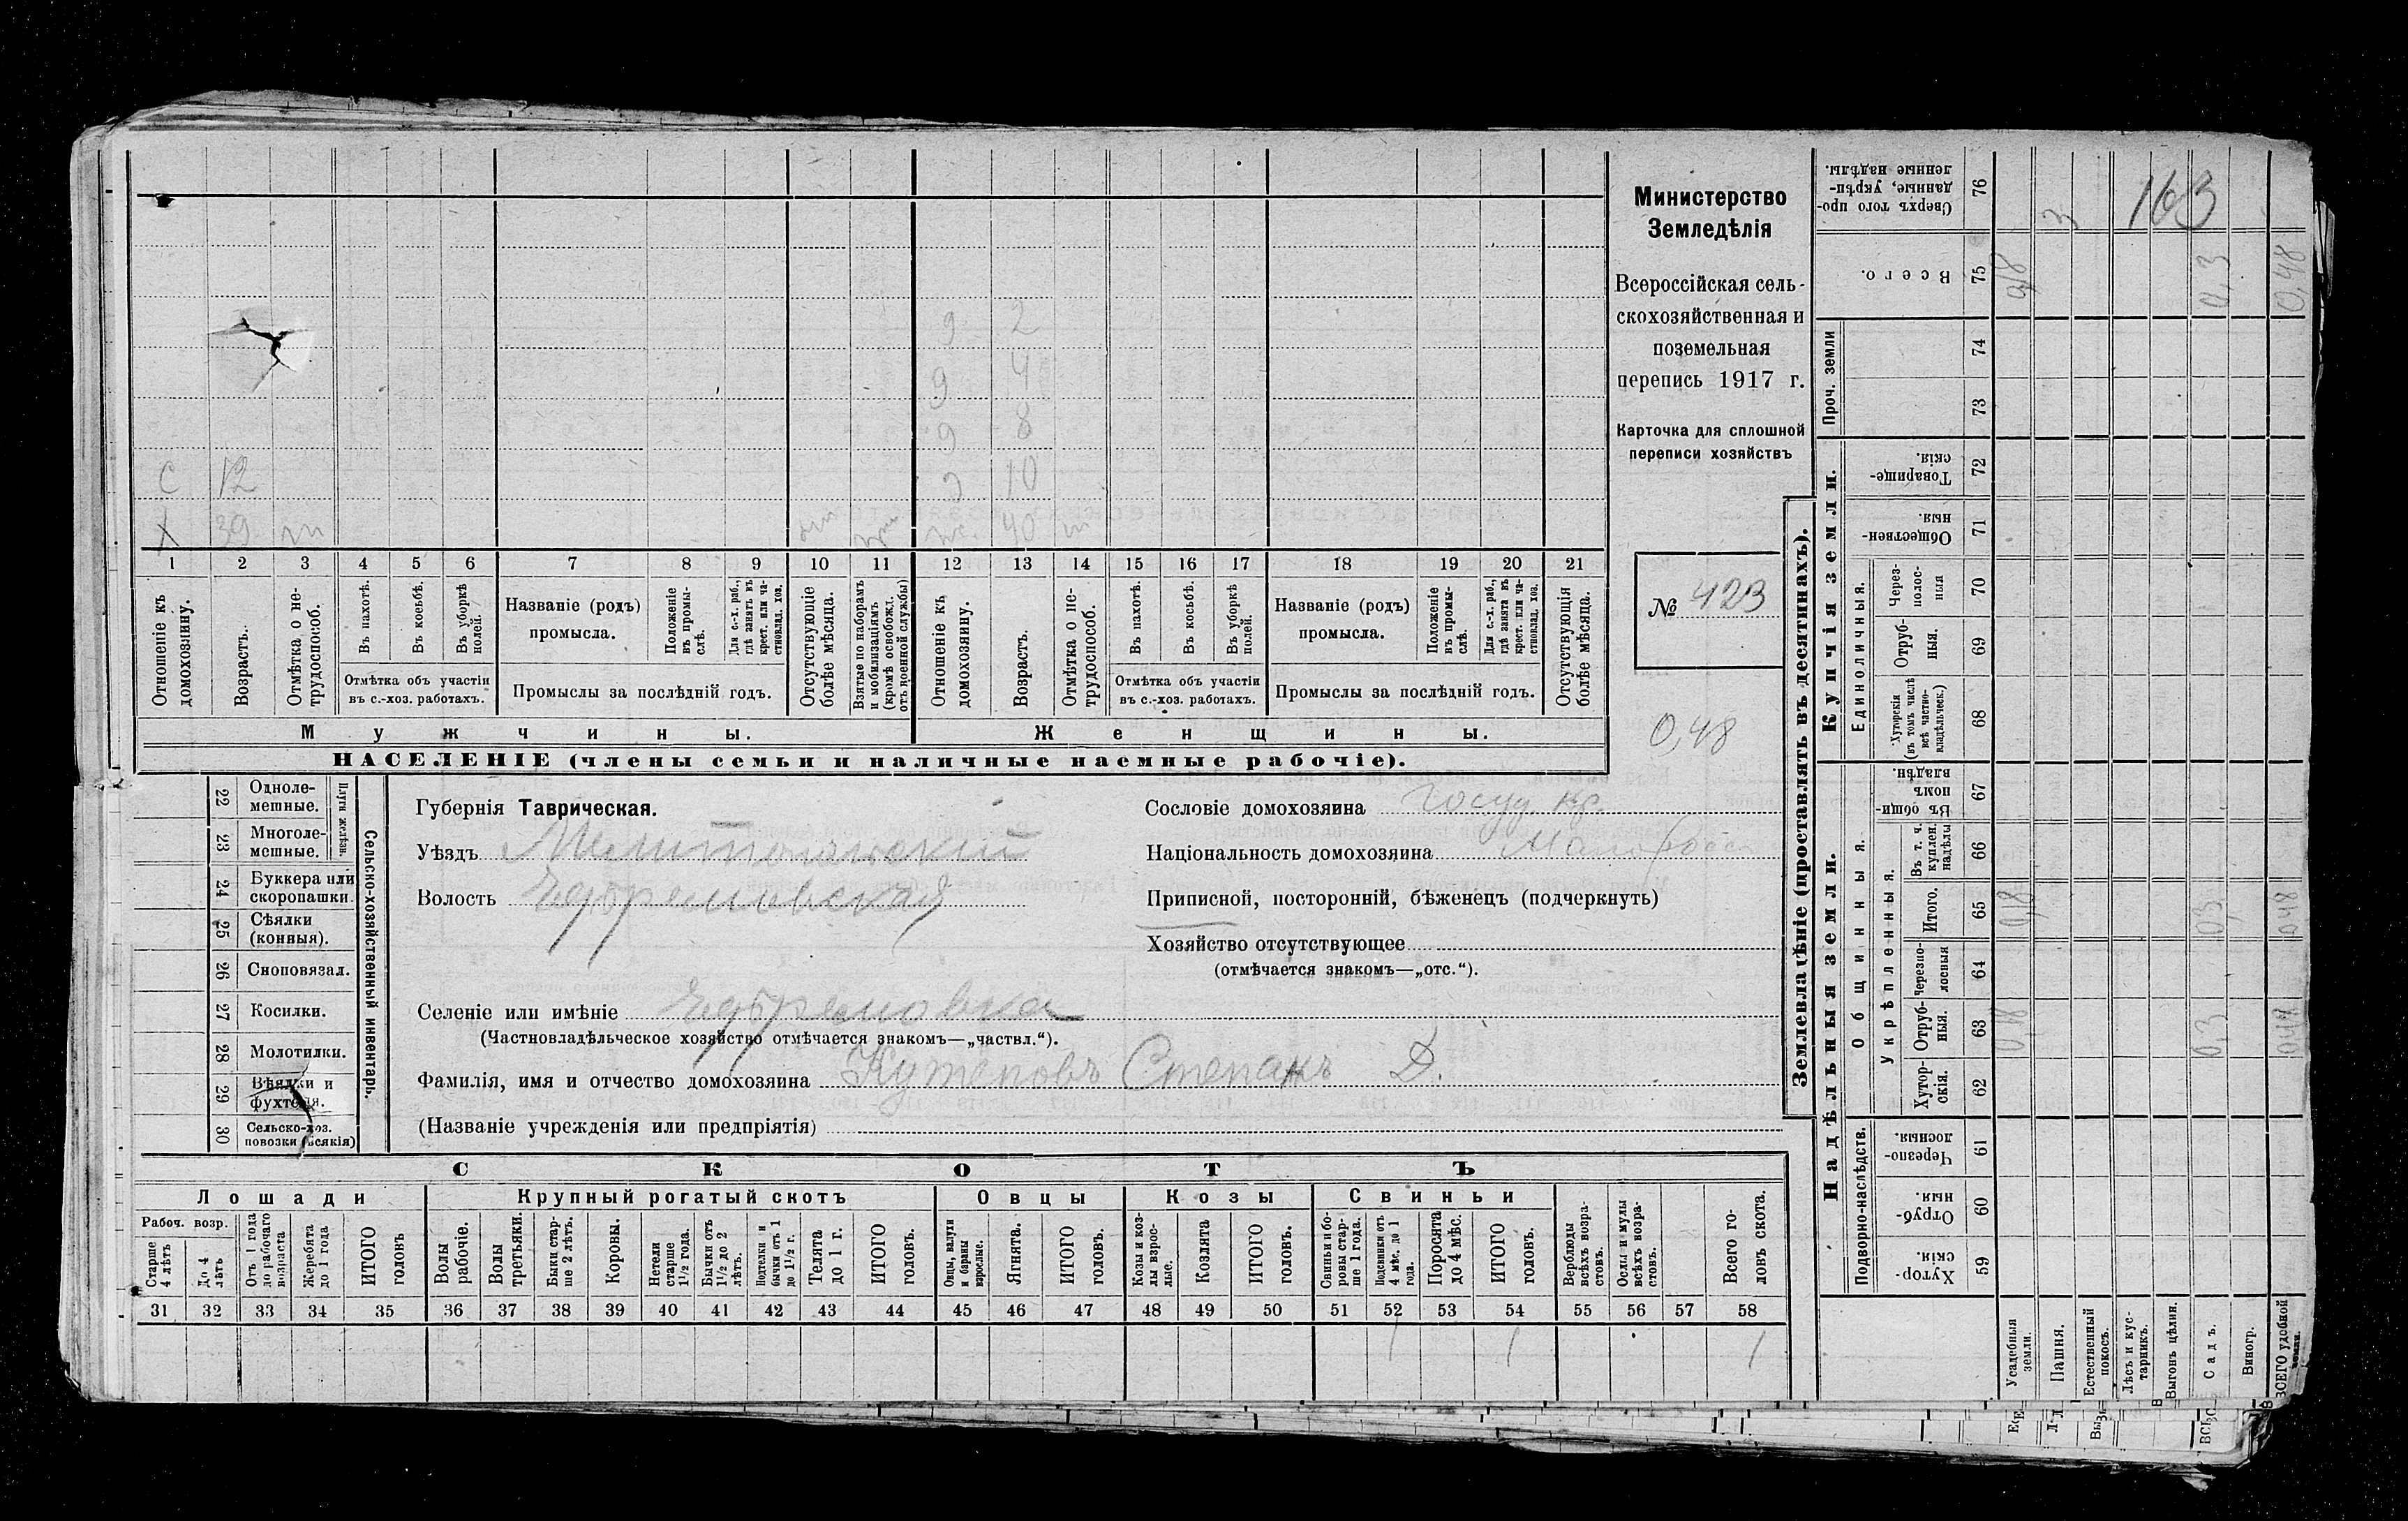 Министерство
Земледѣлія
Всероссійская сель-
скохозяйственная и
поземельная
перепись 1917 г.
Карточка для сплошной
переписи хозяйствъ
№ 423
0,48
9 2
9 4
9 8
с 12 9 10
X 39 40
1 2 3 4 5 6 7 8 9 10 11 12 13 14 15 16 17 18 19 20 21
Отношеніе къ домохозяину.
Возрастъ.
Отмѣтка о не-трудоспособ.
Въ пахотѣ.
Въ косьбѣ.
Въ уборкѣ полей.
Отмѣтка объ участіи
въ с.-хоз. работахъ.
Названіе (родъ)
промысла.
Положеніе въ промы-слѣ.
Для с.-х. раб., гдѣ занятъ въ крест. или ча-стновлад. хоз.
Промыслы за послѣдній годъ.
Отсутствующіе болѣе мѣсяца.
Взятые по наборамъ и мобилизаціямъ (кромѣ освобожд. отъ военной службы)
Отношеніе къ домохозяину.
Возрастъ.
Отмѣтка о не-трудоспособ.
Въ пахотѣ.
Въ косьбѣ.
Въ уборкѣ полей.
Отмѣтка объ участіи
въ с.-хоз. работахъ.
Названіе (родъ)
промысла.
Положеніе въ промы-слѣ.
Для с.-х. раб., гдѣ занята въ крест. или ча-стновлад. хоз.
Промыслы за послѣдній годъ.
Отсутствующія болѣе мѣсяца.
Мужчины.
Женщины.
НАСЕЛЕНІЕ (члены семьи и наличные наемные рабочіе).
Сельско-хозяйственный инвентарь.
Плуги желѣзн.
22 Одноле-мешные.
23 Многоле-мешные.
24 Буккера или скоропашки.
25 Сѣялки (конныя).
26 Сноповязал.
27 Косилки.
28 Молотилки.
29 Вѣялки и фухтеля.
30 Сельско-хоз. повозки (всякія)
Губернія Таврическая.
Уѣздъ Мелитопольскій
Волость Ефремовская
Селеніе или имѣніе Ефремовка
(Частновладѣльческое хозяйство отмѣчается знакомъ—„частвл.“).
Фамилія, имя и отчество домохозяина Кутеповъ Степанъ Д.
(Названіе учрежденія или предпріятія)
Сословіе домохозяина Госуд. кр.
Національность домохозяина Малоросс
Приписной, посторонній, бѣженецъ (подчеркнуть)
Хозяйство отсутствующее
(отмѣчается знакомъ—„отс.“).
СКОТЪ
Лошади
Крупный рогатый скотъ
Овцы
Козы
Свиньи
Рабоч. возр.
Старше 4 лѣтъ
До 4 лѣтъ
Отъ 1 года до рабочаго возраста
Жеребята до 1 года
ИТОГО головъ
Волы рабочіе.
Волы третьяки.
Быки стар-ше 2 лѣтъ.
Коровы.
Нетели старше 1½ года.
Бычки отъ 1½ до 2 лѣтъ.
Подтелки и бычки отъ 1 до 1½ г.
Телята до 1 г.
ИТОГО головъ.
Овцы, валухи и бараны взрослые.
Ягнята.
ИТОГО головъ.
Козы и коз-лы взрос-лые.
Козлята
ИТОГО головъ.
Свиньи и бо-ровы стар-ше 1 года.
Подсвинки отъ 4 мѣс. до 1 года.
Поросята до 4 мѣс.
ИТОГО головъ.
Верблюды всѣхъ возра-стовъ.
Ослы и мулы всѣхъ возра-стовъ.
Всего го-ловъ скота.
31 32 33 34 35 36 37 38 39 40 41 42 43 44 45 46 47 48 49 50 51 52 53 54 55 56 57 58
1 1 1
Землевладѣніе (проставлять въ десятинахъ).
Надѣльныя земли.
Купчія земли.
Проч. земли
Подворно-наслѣдств.
Общинныя.
Укрѣпленныя.
Единоличныя.
Сверхъ того про-данные, укрѣп-ленные надѣлы. 76
Всего. 75
74
73
Товарище-скія. 72
Обществен-ныя. 71
Через-полос-ныя 70
Отруб-ныя. 69
Хуторскія (въ томъ числѣ всѣ частно-владѣльческ.) 68
Въ общи-номъ владѣн. 67
Въ т. ч. куплен. надѣлы 66
Итого. 65
Черезпо-лосныя 64
Отруб-ныя. 63
Хутор-скія. 62
Черезпо-лосныя. 61
Отруб-ныя. 60
Хутор-скія. 59
Усадебныя земли.
Пашня.
Естественный покосъ.
Лѣсъ и кус-тарникъ.
Выгонъ цѣлин.
Садъ.
Виногр.
ВСЕГО удобной земли.
3
163
0,3
0,48
0,3